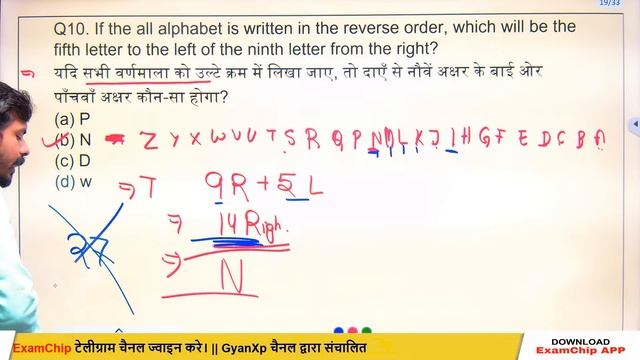 19/33
Q10. If the all alphabet is written in the reverse order, which will be the
fifth letter to the left of the ninth letter from the right?
यदि सभी वर्णमाला को उल्टे क्रम में लिखा जाए, तो दाएँ से नौवें अक्षर के बाईं ओर
पाँचवाँ अक्षर कौन-सा होगा?
(a) P
(b) N
Z Y X W V U T S R Q P N M L K J I H G F E D C B A
(c) D
(d) w
T 9R + 5L
14 Righ.
N
27
ExamChip टेलीग्राम चैनल ज्वाइन करे। || GyanXp चैनल द्वारा संचालित
DOWNLOAD
ExamChip APP